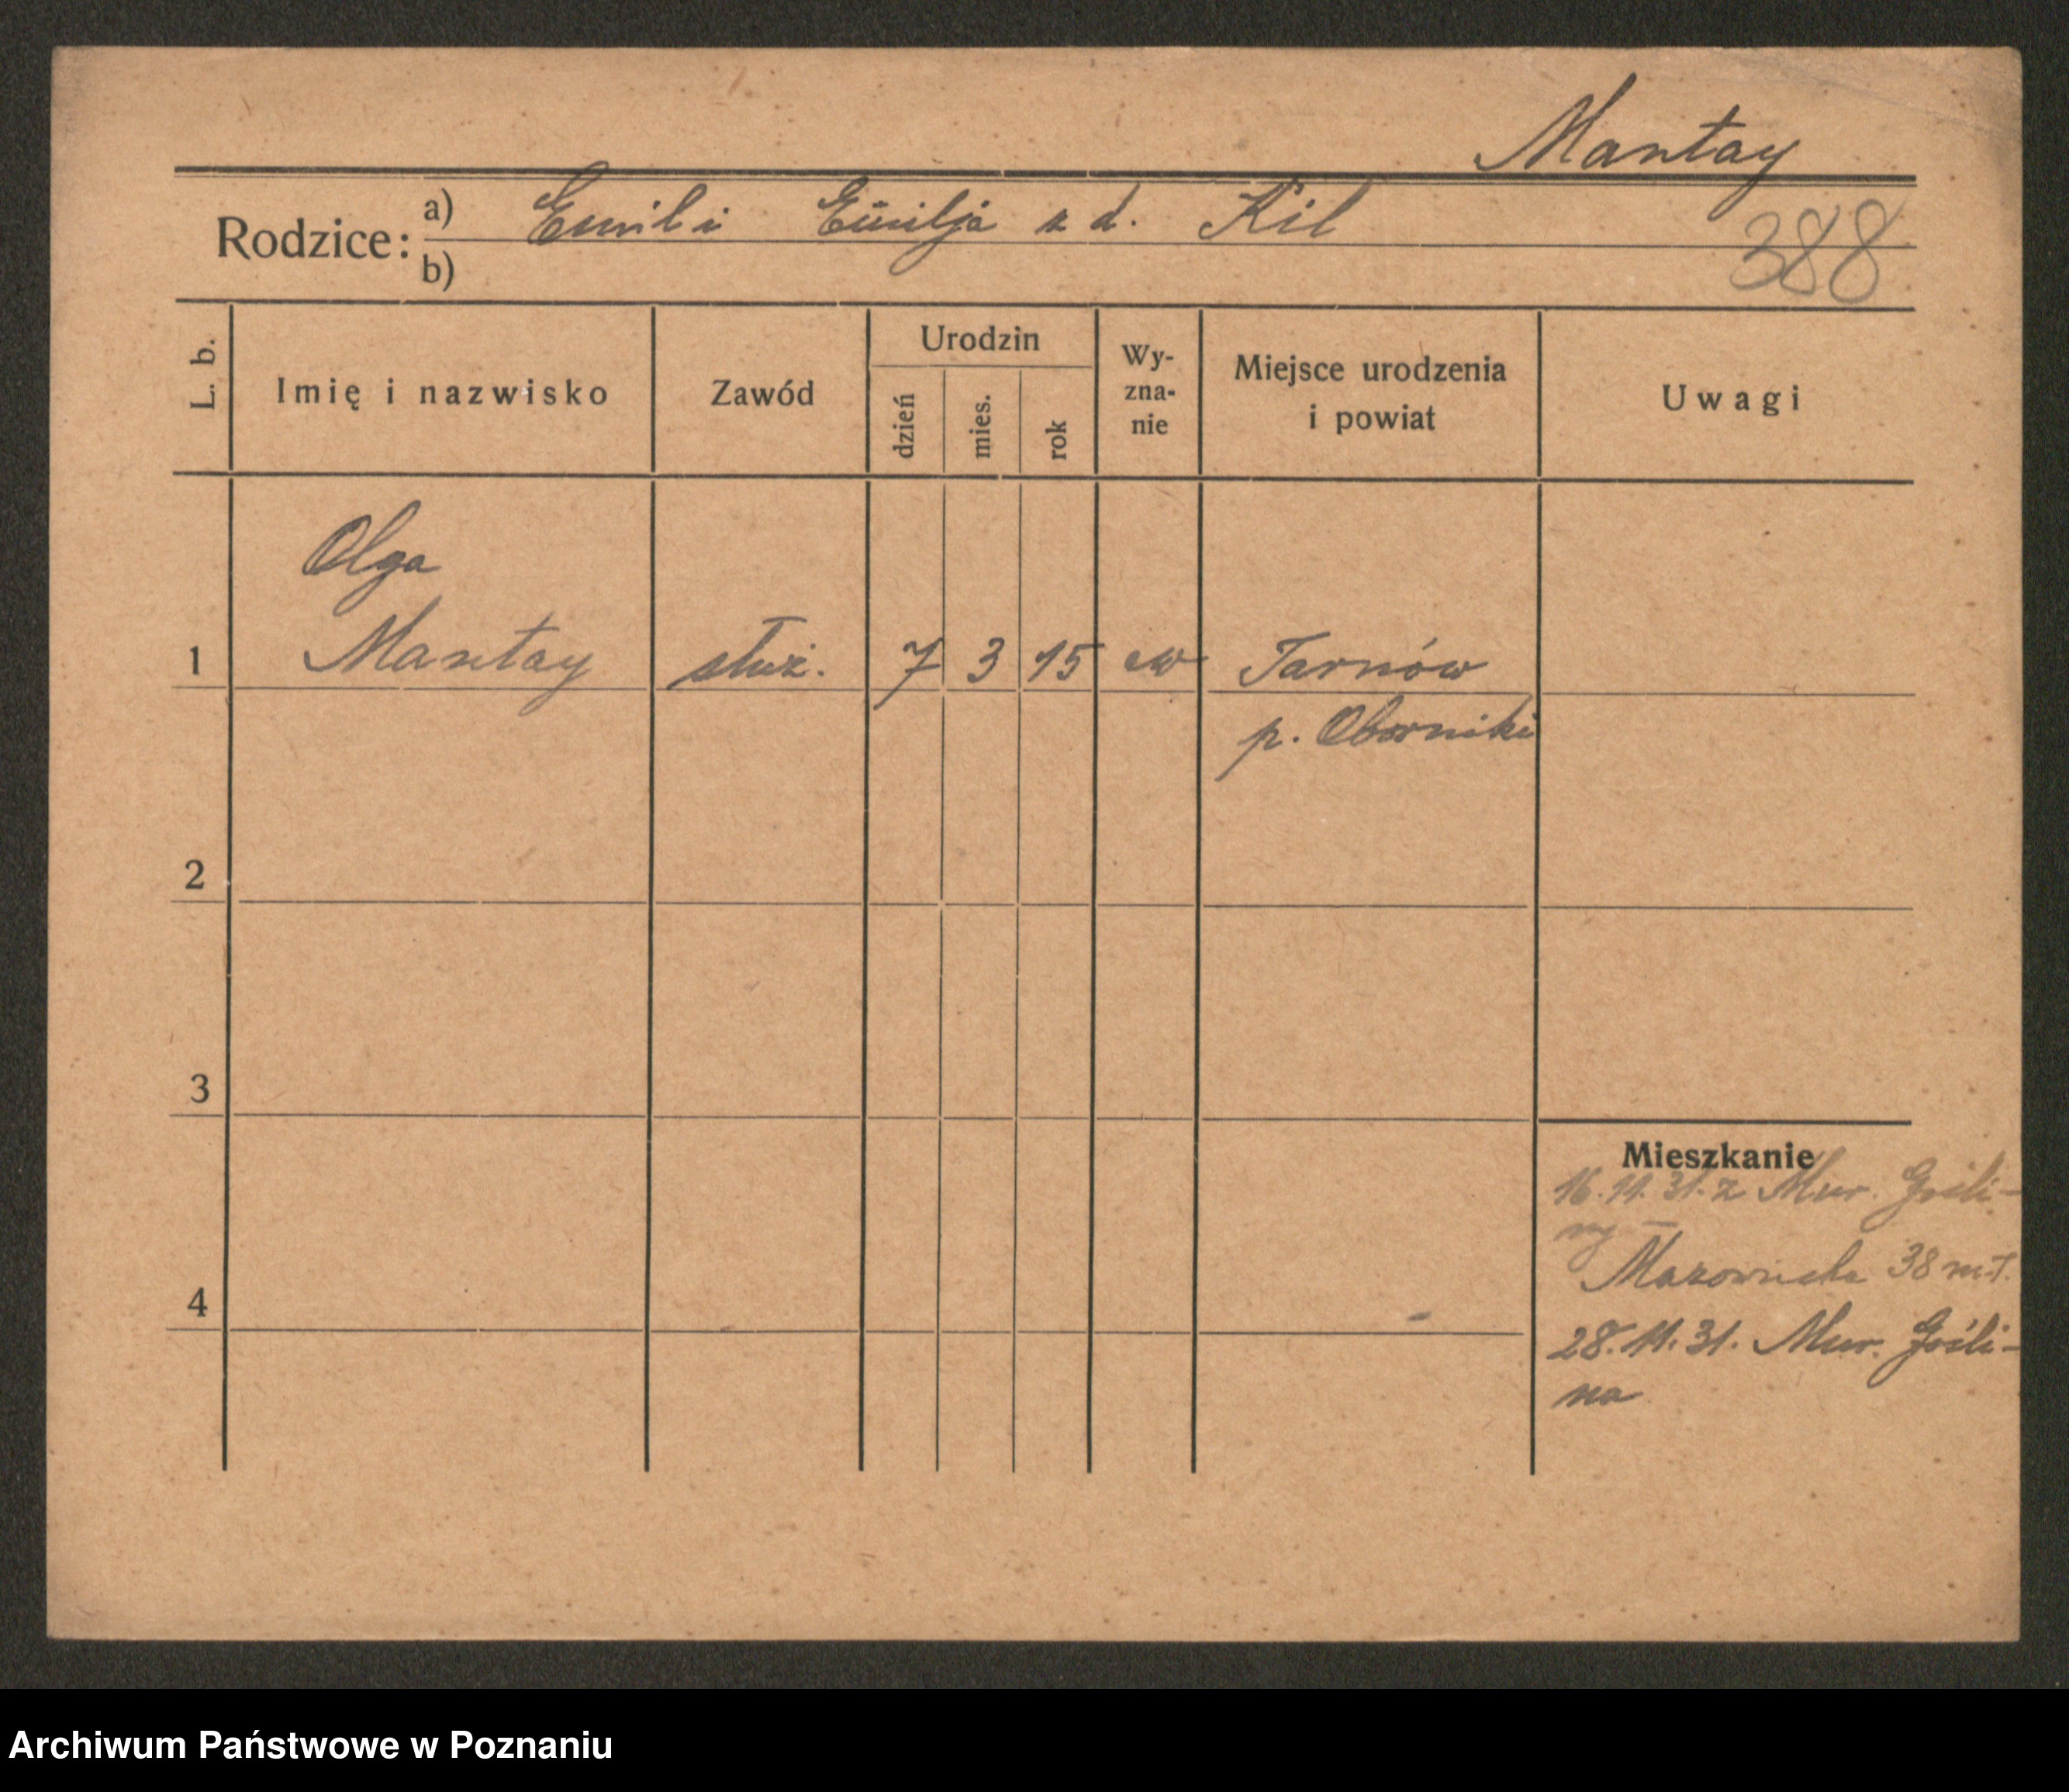 Mantay
Rodzice: a) Emil i Emilja z d. Kil
b)
388
L. b.
Imię i nazwisko
Zawód
Urodzin
dzień
mies.
rok
Wy-
zna-
nie
Miejsce urodzenia
i powiat
Uwagi
Olga
1 Mantay służ. 7 3 15 ew Tarnów
p. Oborniki
2
3
Mieszkanie
16.11.31. z Mur. Gośli-
ny
Mazowiecka 38
4
28.11.31. Mur. Gośli-
na
Archiwum Państwowe w Poznaniu